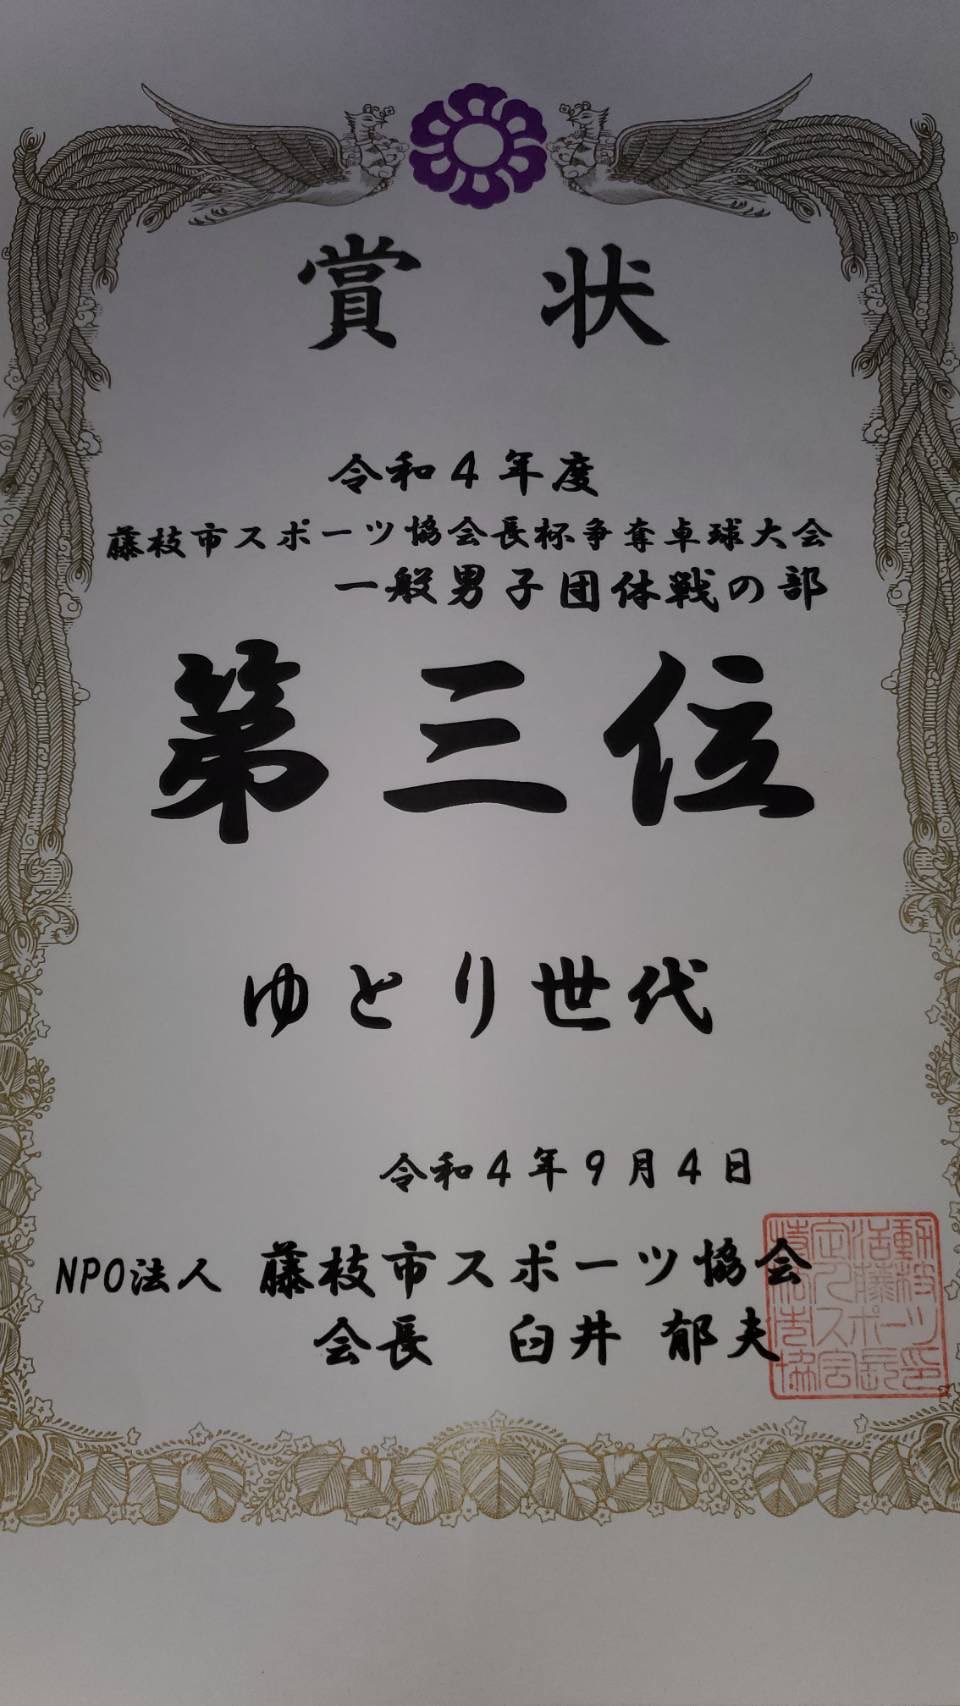 賞状
令和4年度
藤枝市スポーツ協会長杯争奪卓球大会
一般男子団体戦の部
第三位
ゆとり世代
令和4年9月4日
NPO法人 藤枝市スポーツ協会
会長 臼井 郁夫